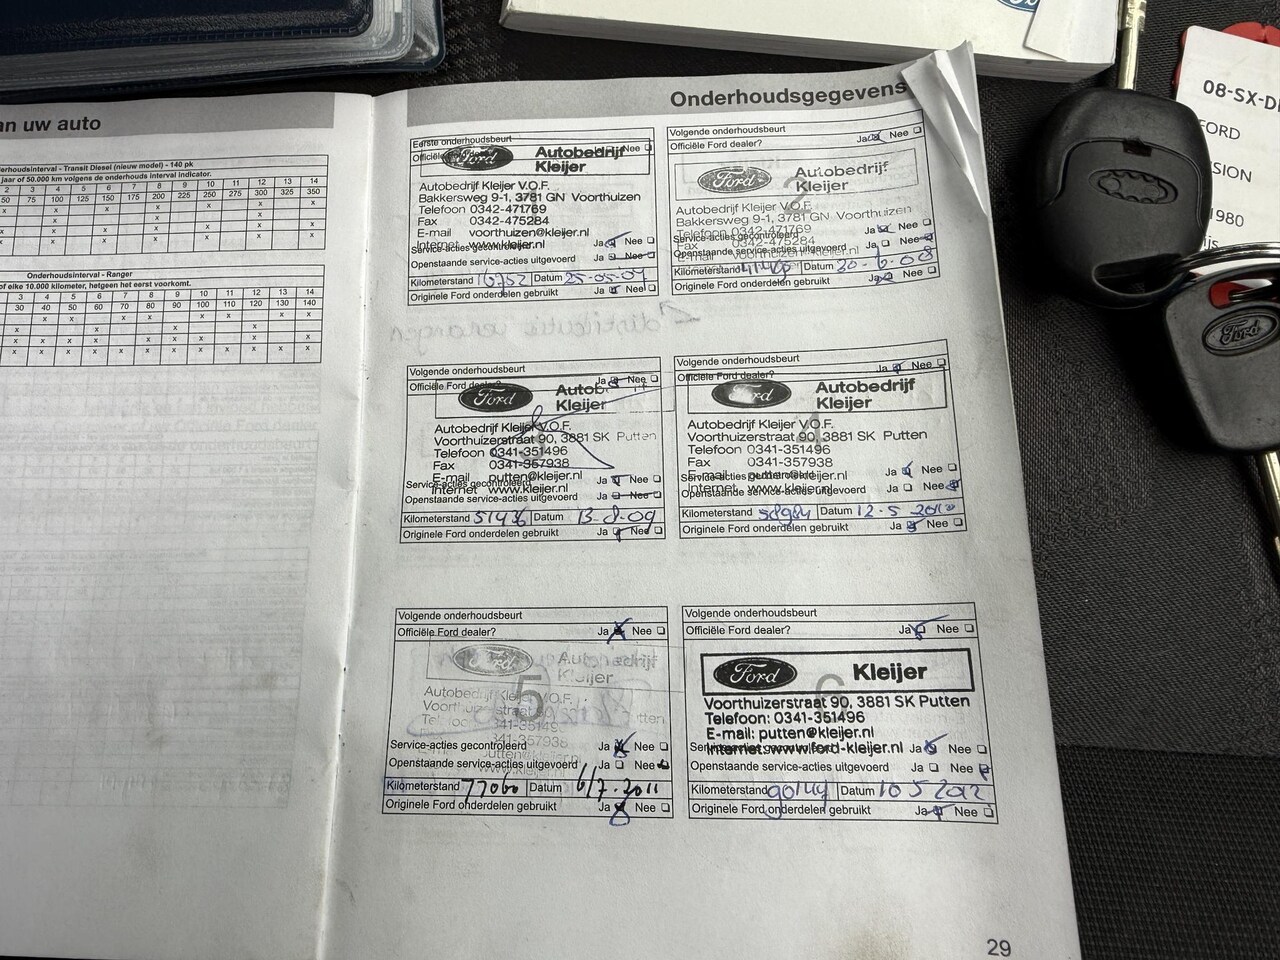 an uw auto
derhoudsinterval - Transit Diesel (nieuw model) - 140 pk
jaar of 50.000 km volgens de onderhouds interval indicator.
2 3 4 5 6 7 8 9 10 11 12 13 14
50 75 100 125 150 175 200 225 250 275 300 325 350
Onderhoudsinterval - Ranger
of elke 10.000 kilometer, hetgeen het eerst voorkomt.
3 4 5 6 7 8 9 10 11 12 13 14
30 40 50 60 70 80 90 100 110 120 130 140
Onderhoudsgegevens
Eerste onderhoudsbeurt
Officiële
Nee
Ford
Autobedrijf
Kleijer
Autobedrijf Kleijer V.O.F.
Bakkersweg 9-1, 3781 GN Voorthuizen
Telefoon 0342-471769
Fax 0342-475284
E-mail voorthuizen@kleijer.nl
Internet www.kleijer.nl
Service-acties gecontroleerd Ja Nee
Openstaande service-acties uitgevoerd Ja Nee
Kilometerstand 16752 Datum 25-05-07
Originele Ford onderdelen gebruikt Ja Nee
Volgende onderhoudsbeurt
Officiële Ford dealer? Ja Nee
Ford
Autobedrijf
Kleijer
2
Autobedrijf Kleijer V.O.F.
Bakkersweg 9-1, 3781 GN Voorthuizen
Telefoon 0342-471769
Fax 0342-475284
E-mail voorthuizen@kleijer.nl
Service-acties gecontroleerd Ja Nee
Openstaande service-acties uitgevoerd Ja Nee
Kilometerstand Datum 20-6-08
Originele Ford onderdelen gebruikt Ja
Volgende onderhoudsbeurt
Officiële Ford dealer? Ja Nee
Ford
Autobedrijf
Kleijer
3
Autobedrijf Kleijer V.O.F.
Voorthuizerstraat 90, 3881 SK Putten
Telefoon 0341-351496
Fax 0341-357938
E-mail putten@kleijer.nl
Internet www.kleijer.nl
Service-acties gecontroleerd Ja Nee
Openstaande service-acties uitgevoerd Ja Nee
Kilometerstand 51436 Datum 13-8-09
Originele Ford onderdelen gebruikt Ja Nee
Volgende onderhoudsbeurt
Officiële Ford dealer? Ja Nee
Ford
Autobedrijf
Kleijer
4
Autobedrijf Kleijer V.O.F.
Voorthuizerstraat 90, 3881 SK Putten
Telefoon 0341-351496
Fax 0341-357938
E-mail putten@kleijer.nl
Internet www.kleijer.nl
Service-acties gecontroleerd Ja Nee
Openstaande service-acties uitgevoerd Ja Nee
Kilometerstand Datum 12-5-2010
Originele Ford onderdelen gebruikt Ja Nee
Volgende onderhoudsbeurt
Officiële Ford dealer? Ja Nee
Ford
Autobedrijf
Kleijer
5
Autobedrijf Kleijer V.O.F.
Service-acties gecontroleerd Ja Nee
Openstaande service-acties uitgevoerd Ja Nee
Kilometerstand 77060 Datum 6/7-2011
Originele Ford onderdelen gebruikt Ja Nee
Volgende onderhoudsbeurt
Officiële Ford dealer? Ja Nee
Ford
Kleijer
6
Voorthuizerstraat 90, 3881 SK Putten
Telefoon: 0341-351496
E-mail: putten@kleijer.nl
Internet: www.ford-kleijer.nl
Service-acties gecontroleerd Ja Nee
Openstaande service-acties uitgevoerd Ja Nee
Kilometerstand Datum 10 5 2012
Originele Ford onderdelen gebruikt Ja Nee
29
08-SX-D
FORD
SION
1980
Ford